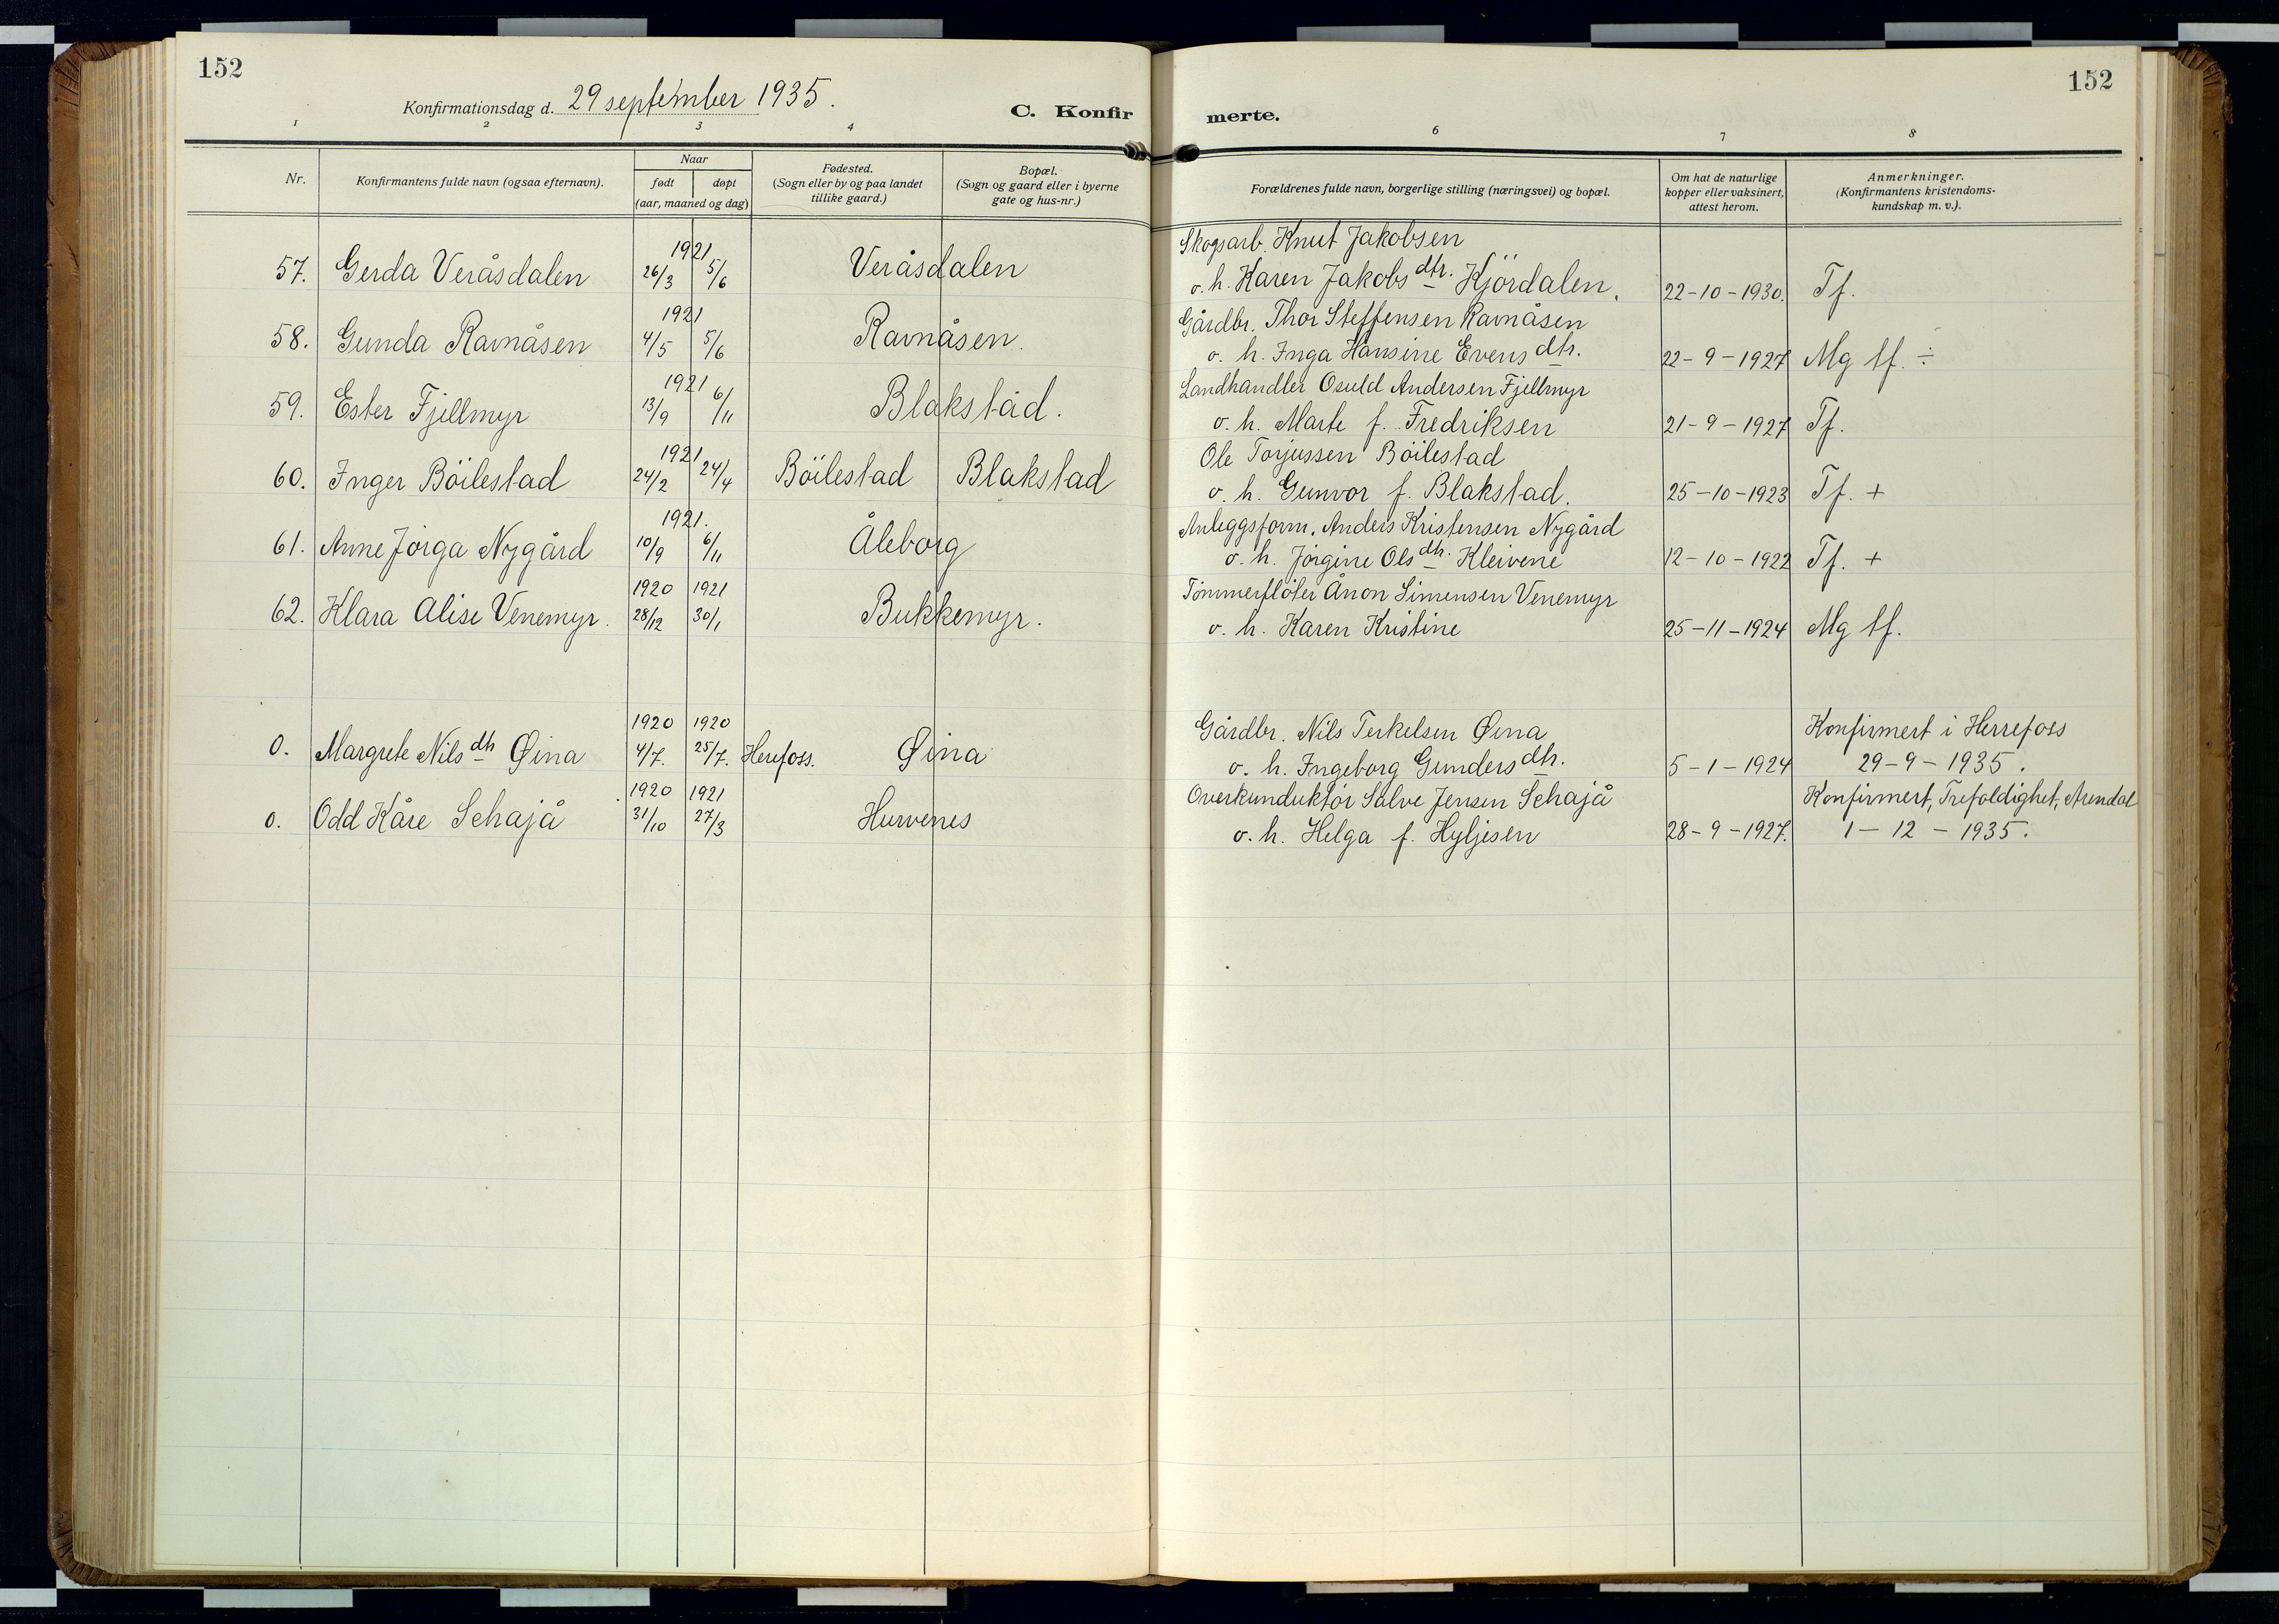 152
Konfirmationsdag d. 29 september 1935.
C. Konfir
merte.
152
1 2 3 4 6 7 8
Nr.
Konfirmantens fulde navn (ogsaa efternavn).
Naar
født døpt
(aar, maaned og dag)
Fødested.
(Sogn eller by og paa landet
tillike gaard.)
Bopæl.
(Sogn og gaard eller i byerne
gate og hus-nr.)
Forældrenes fulde navn, borgerlige stilling (næringsvei) og bopæl.
Om hat de naturlige
kopper eller vaksinert,
attest herom.
Anmerkninger.
(Konfirmantens kristendoms-
kundskap m. v.).
1921 Skogsarb. Knut Jakobsen
57. Gerda Veråsdalen 26/3 5/6 Veråsdalen o. h. Karen Jakobsdtr. Kjördalen. 22-10-1930. Tf.
1921 Gårdbr. Thor Steffensen Ravnåsen
58. Gunda Ravnåsen 4/5 5/6 Ravnåsen. o. h. Inga Hansine Evensdtr. 22-9-1927 Mg tf. ÷
1921 Landhandler Osuld Andersen Fjellmyr
59. Ester Fjellmyr 13/9 6/11 Blakstad. o. h. Marte f. Fredriksen 21-9-1927 Tf.
1921 Ole Torjussen Böilestad
60. Inger Böilestad 24/2 24/4 Böilestad Blakstad o. h. Gunvor f. Blakstad. 25-10-1923 Tf. +
1921. Anleggsform. Anders Kristensen Nygård
61. Anne Jörga Nygård 10/9 6/11 Åleborg o. h. Jörgine Olsdtr. Kleivene 12-10-1922 Tf. +
1920 1921 Tömmerflöter Ånon Simensen Venemyr
62. Klara Alise Venemyr. 28/12 30/1 Bukkemyr. o. h. Karen Kristine 25-11-1924 Mg tf.
1920 1920 Gårdbr. Nils Terkelsen Øina Konfirmert i Herrefoss
0. Margrete Nilsdtr Øina 4/7. 25/7. Herefoss. Øina o. h. Ingeborg Gundersdtr. 5-1-1924 29-9-1935.
1920 1921 Overkunduktör Salve Jensen Schajå Konfirmert, Trefoldighet, Arendal
0. Odd Kåre Schajå 31/10 27/3 Hurvenes o. h. Helga f. Hyljesen 28-9-1927. 1-12-1935.